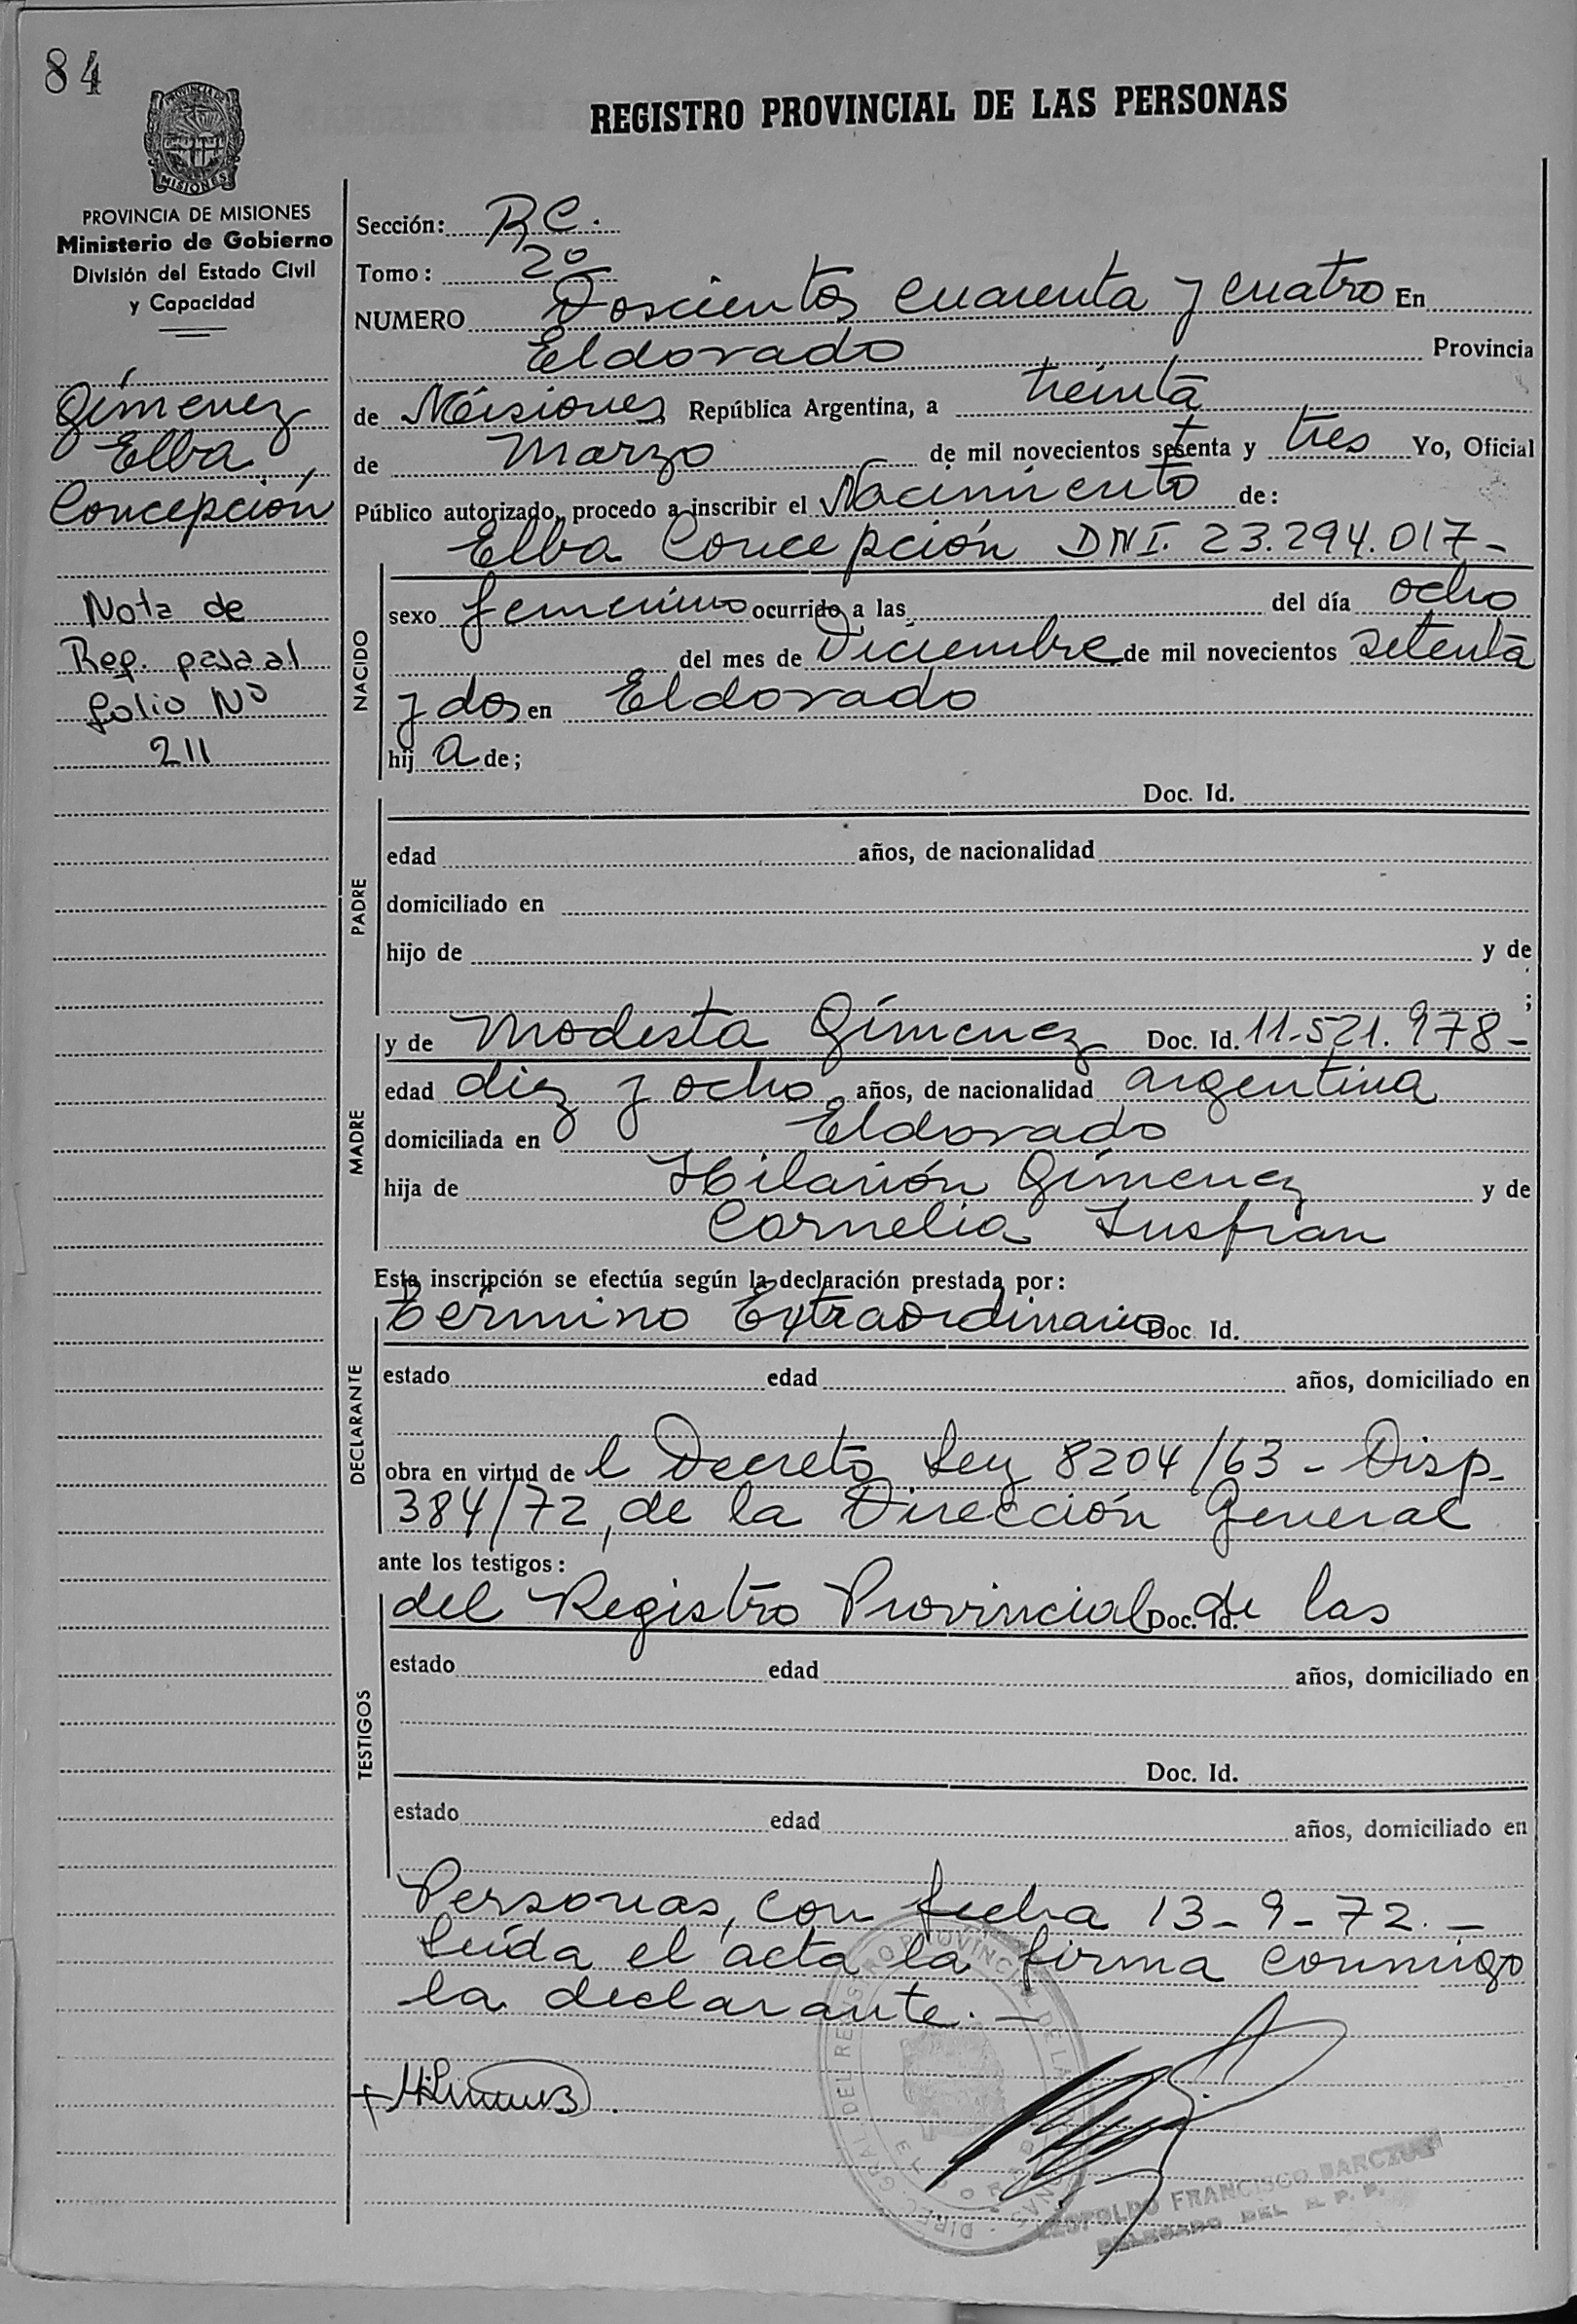 84
PROVINCIA DE
MISIONES
REGISTRO PROVINCIAL DE LAS PERSONAS
PROVINCIA DE MISIONES
Ministerio de Gobierno
División del Estado Civil
y Capacidad
Gímenez
Elba
Concepción
Nota de
Rep. pasa al
folio Nº
211
Sección: R C.
Tomo: 2º
NUMERO Doscientos cuarenta y cuatro En
Eldorado Provincia
de Misiones República Argentina, a treinta
de Marzo de mil novecientos setenta y tres Yo, Oficial
Público autorizado, procedo a inscribir el Nacimiento de:
Elba Concepción DNI. 23.294.017-
NACIDO
sexo femenino ocurrido a las del día ocho
del mes de Diciembre de mil novecientos setenta
y dos en Eldorado
hij a de;
PADRE
Doc. Id.
edad años, de nacionalidad
domiciliado en
hijo de y de
;
MADRE
y de Modesta Gímenez Doc. Id. 11.521.978-
edad diez y ocho años, de nacionalidad argentina
domiciliada en Eldorado
hija de Hilarión Gímenez y de
Cornelia Insfran
Esta inscripción se efectúa según la declaración prestada por:
DECLARANTE
Término Extraordinario Doc. Id.
estado edad años, domiciliado en
obra en virtud de l Decreto Ley 8204/63 - Disp.
384/72, de la Dirección General
ante los testigos:
TESTIGOS
del Registro Provincial Doc. Id. de las
estado edad años, domiciliado en
Doc. Id.
estado edad años, domiciliado en
Personas, con fecha 13-9-72.-
Leída el acta la firma conmigo
la declarante.-
DIREC. GRAL. DEL REGISTRO PROVINCIAL DE LAS PERSONAS
LEOPOLDO FRANCISCO BARCZUK
DELEGADO DEL R. P. P.